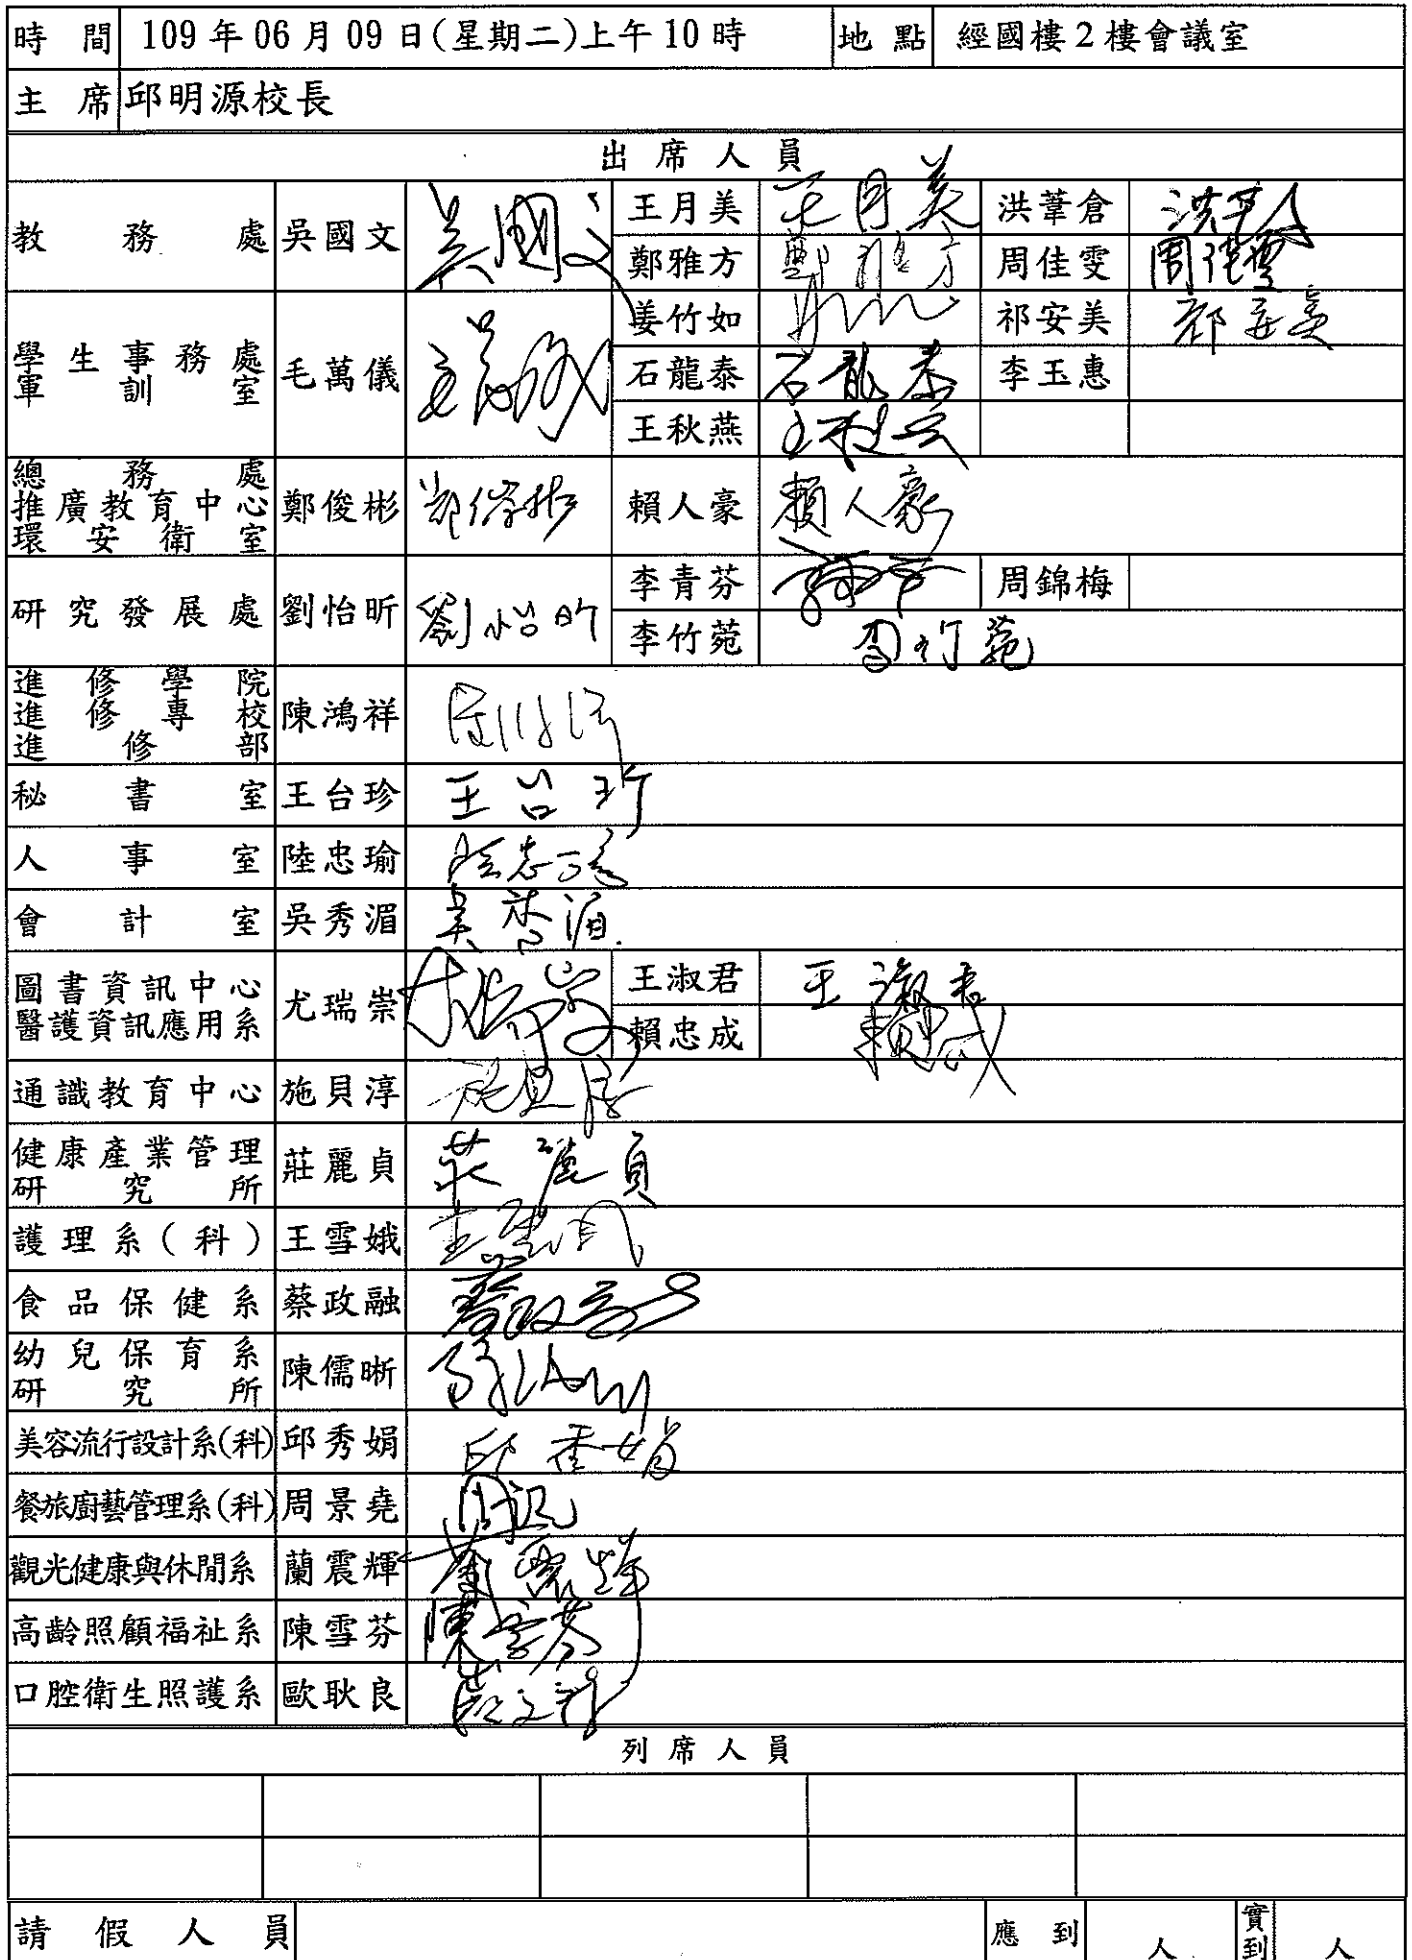 時間 109年06月09日(星期二)上午10時 地點 經國樓2樓會議室
主席 邱明源校長
出席人員
教務處 吳國文 吳國文 王月美 王月美 洪葦倉
鄭雅方 鄭雅方 周佳雯 周佳雯
學生事務處
軍訓室 毛萬儀 姜竹如 祁安美 祁安美
石龍泰 石龍泰 李玉惠
王秋燕
總務處
推廣教育中心 鄭俊彬 賴人豪 賴人豪
環安衛室
研究發展處 劉怡昕 劉怡昕 李青芬 周錦梅
李竹菀 李竹菀
進修學院
進修專校 陳鴻祥
進修部
秘書室 王台珍 王台珍
人事室 陸忠瑜
會計室 吳秀湄 吳秀湄
圖書資訊中心
醫護資訊應用系 尤瑞崇 王淑君 王淑君
賴忠成 賴忠成
通識教育中心 施貝淳
健康產業管理
研究所 莊麗貞 莊麗貞
護理系(科) 王雪娥
食品保健系 蔡政融
幼兒保育系
研究所 陳儒晰
美容流行設計系(科) 邱秀娟 邱秀娟
餐旅廚藝管理系(科) 周景堯
觀光健康與休閒系 蘭震輝
高齡照顧福祉系 陳雪芬 陳雪芬
口腔衛生照護系 歐耿良
列席人員
請假人員 應到 人 實到 人